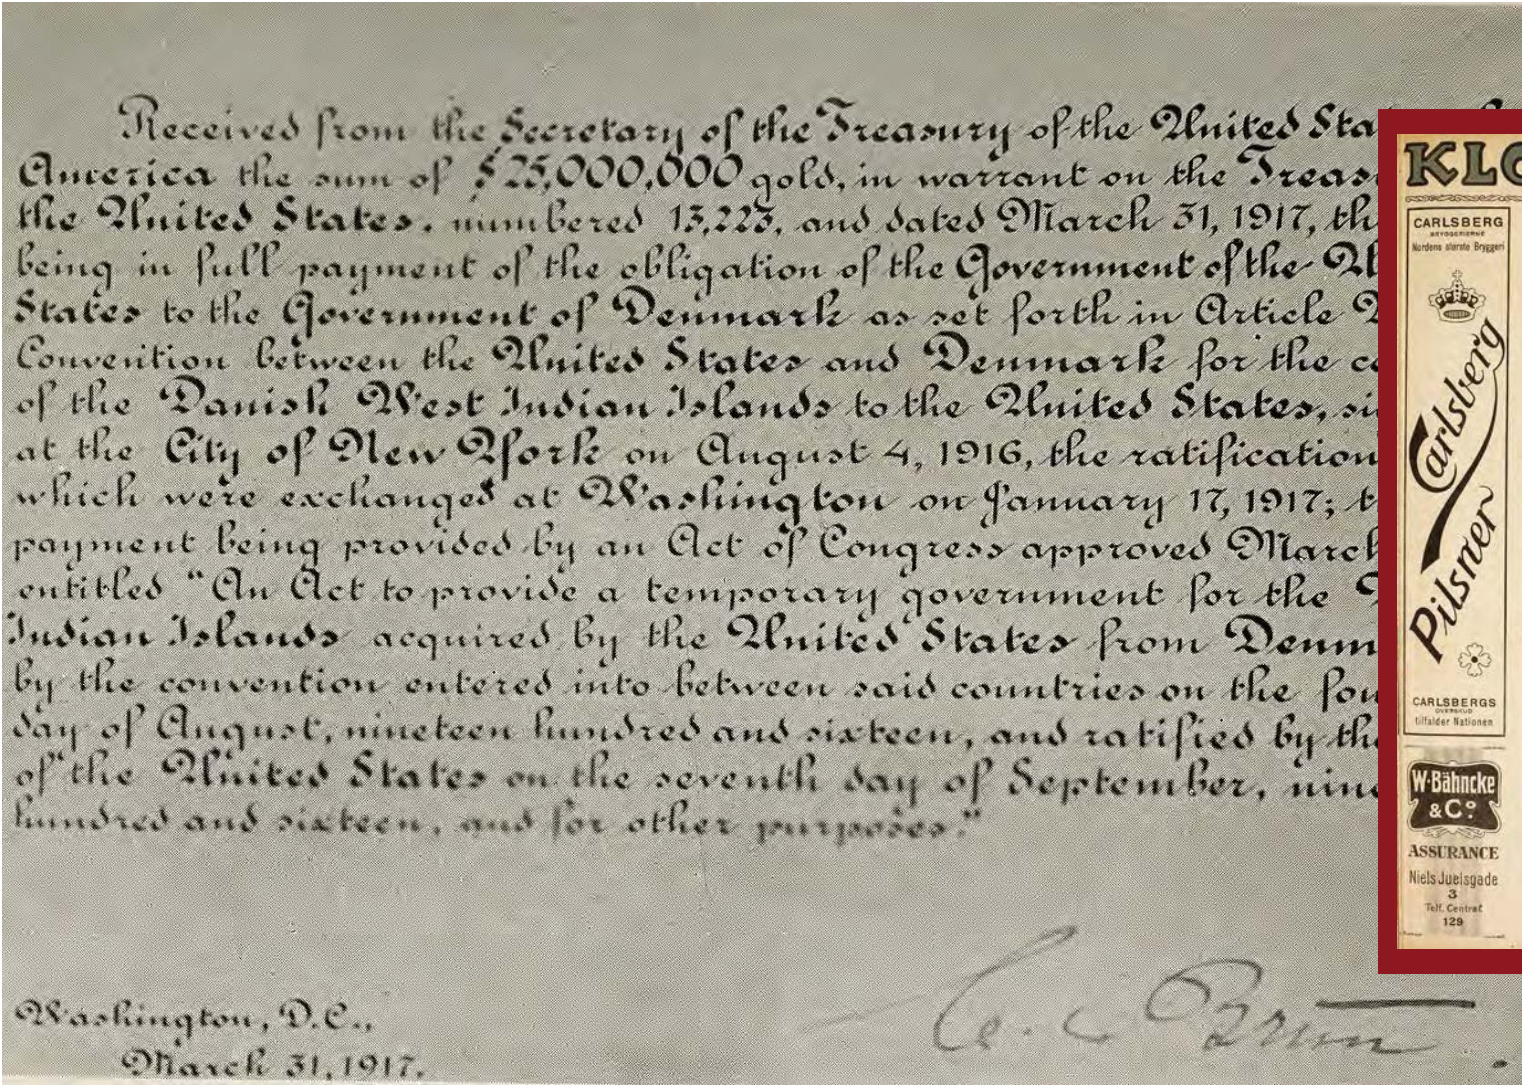 Received from the Secretary of the Treasury of the United Sta
America the sum of $25,000,000 gold, in warrant on the Treas
the United States, numbered 13,223, and dated March 31, 1917, th
being in full payment of the obligation of the Government of the U
States to the Government of Denmark as set forth in Article
Convention between the United States and Denmark for the c
of the Danish West Indian Islands to the United States, si
at the City of New York on August 4, 1916, the ratification
which were exchanged at Washington on January 17, 1917; t
payment being provided by an Act of Congress approved March
entitled "An Act to provide a temporary government for the
Indian Islands acquired by the United States from Denm
by the convention entered into between said countries on the fou
day of August, nineteen hundred and sixteen, and ratified by the
of the United States on the seventh day of September, nine
hundred and sixteen, and for other purposes."
Washington, D.C.,
March 31, 1917.
C. Brun
KLO
CARLSBERG
BRYGGERIERNE
Nordens største Bryggeri
Carlsberg
Pilsner
CARLSBERGS
OVERSKUD
tilfalder Nationen
W. Bähncke
& Co.
ASSURANCE
Niels Juelsgade
3
Telf. Central
129